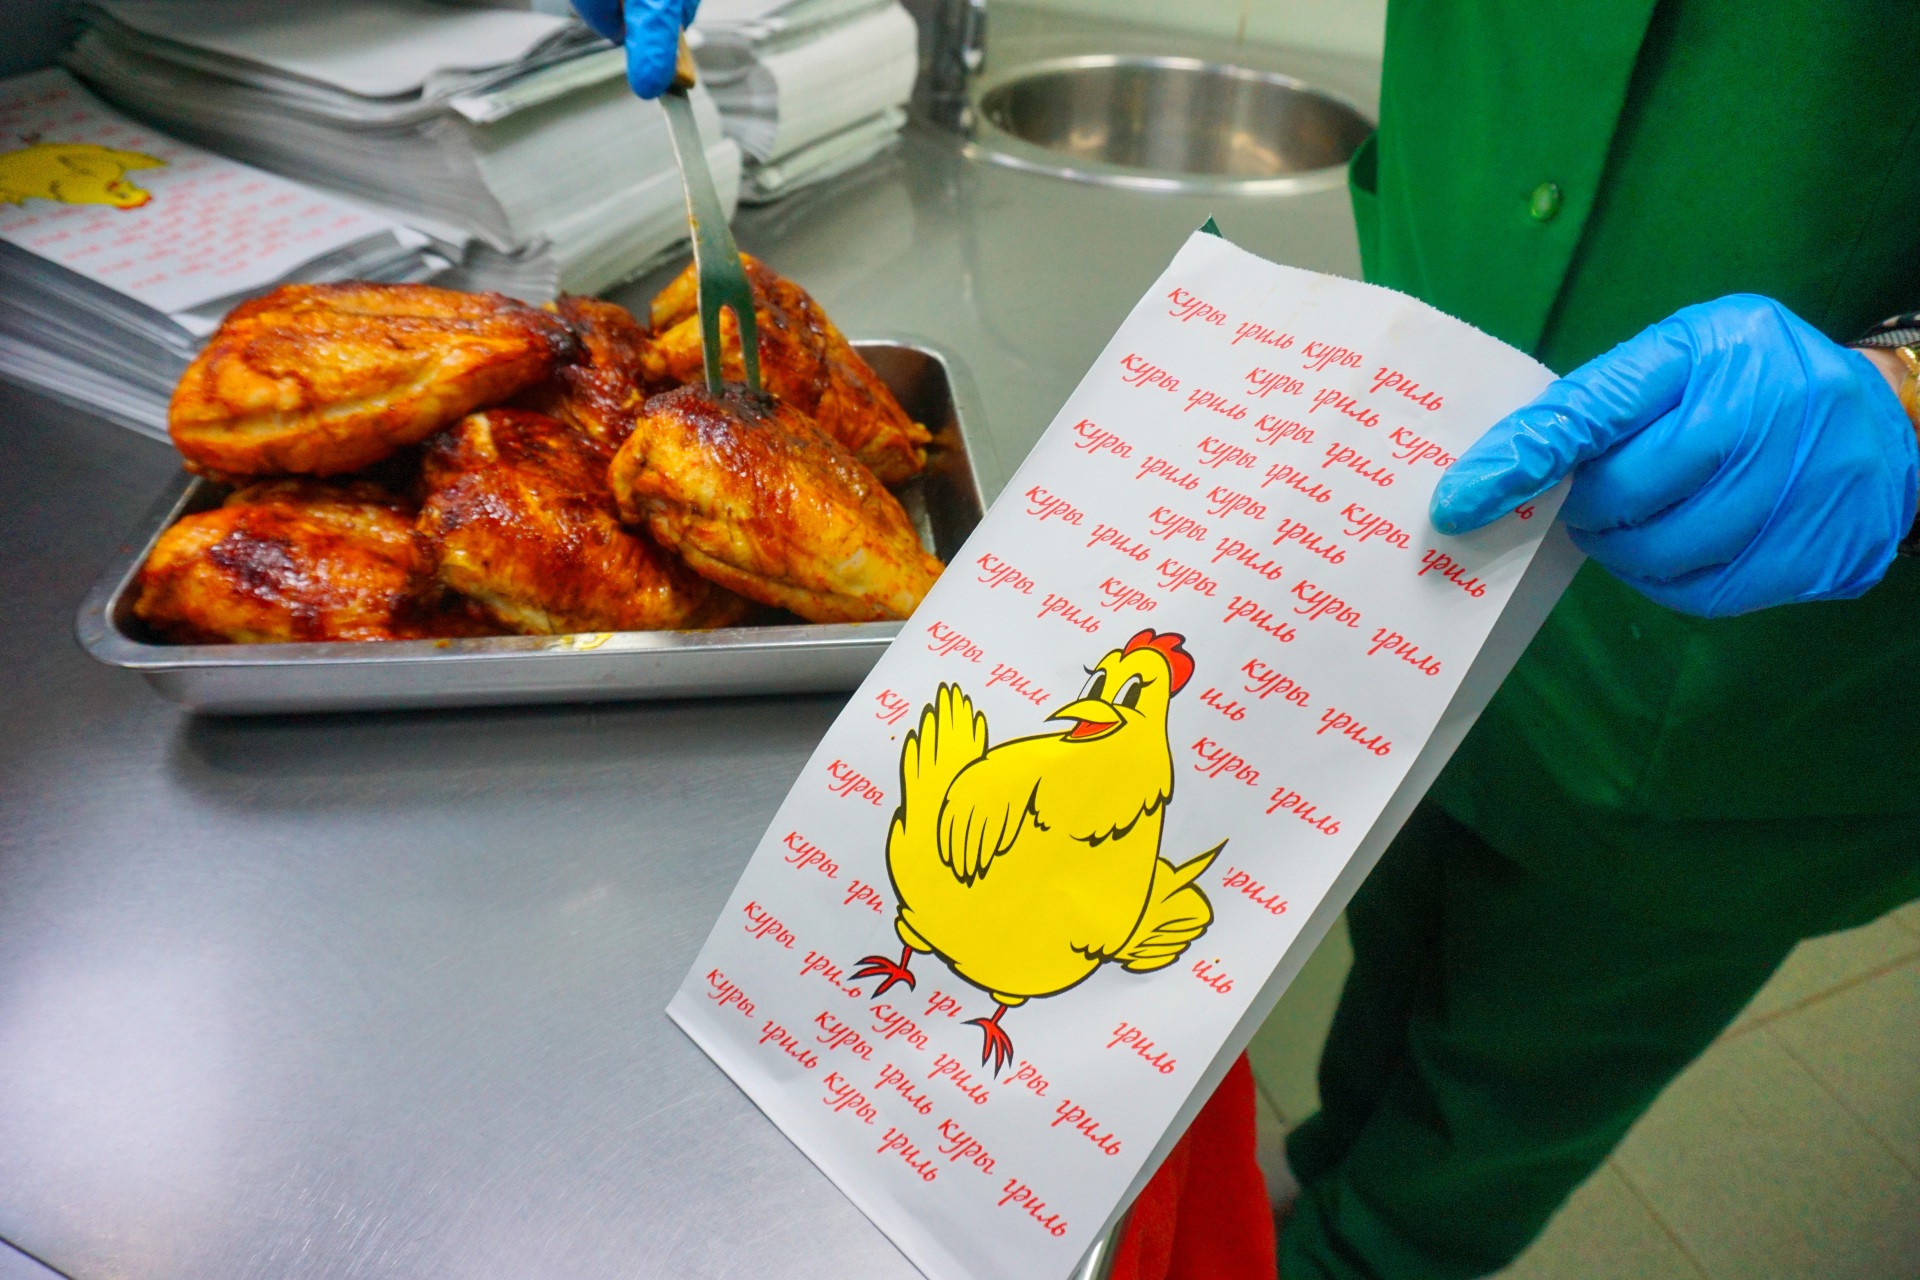 куры гриль куры гриль
куры гриль куры
куры гриль куры гриль
куры гриль куры гриль
куры гриль куры гриль
куры гриль куры гриль
куры гриль куры гриль
куры
куры гриль
куры гриль
куры гриль
куры гриль
куры
гриль
куры
куры гриль
гриль
куры гриль куры гриль
куры гриль куры гриль
куры гриль куры гриль